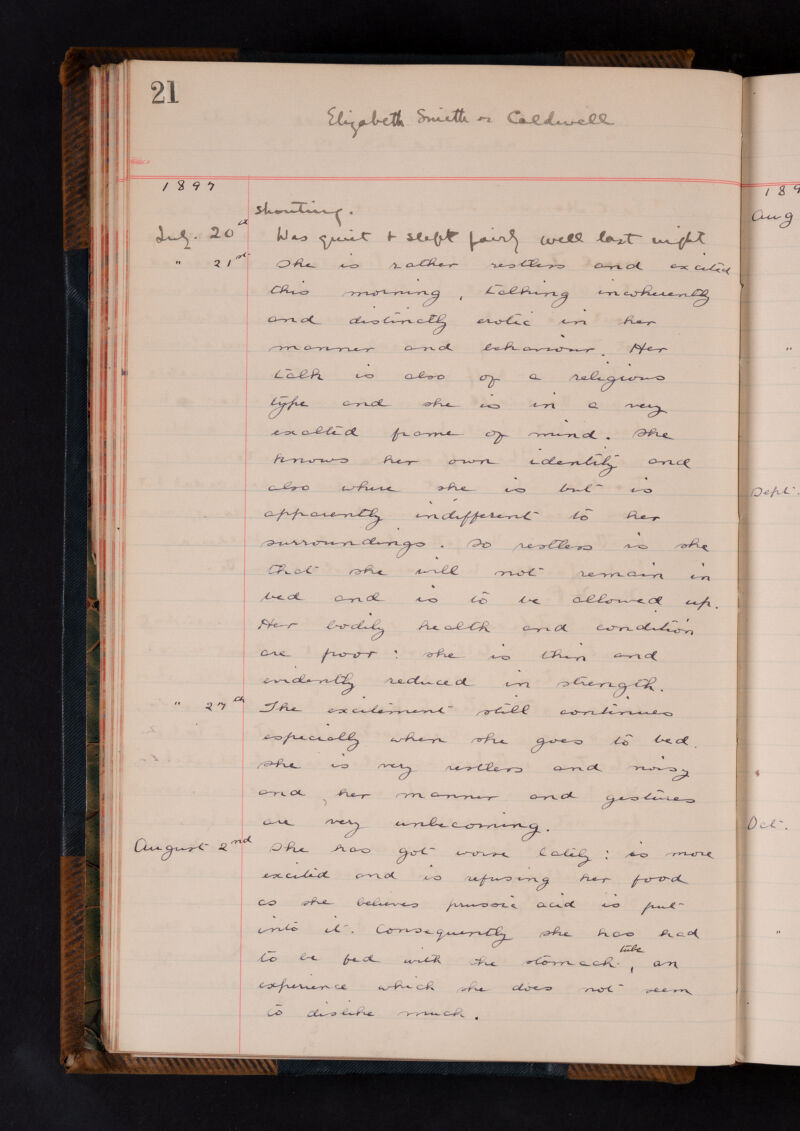 21
Elizabeth Smith or Caldwell
1897
shouting.
July. 20th Was quiet & slept fairly well last night
" 21st She is rather restless and excited
this morning, talking incoherently
and distinctly erotic in her
manner and behaviour. Her
talk is also of a religious
type and she is in a very
exalted frame of mind. She
knows her own identity and
also where she is but is
apparently indifferent to her
surroundings. So restless is she
that she will not remain in
bed and is to be allowed up.
Her bodily health and condition
are poor: she is thin and
evidently reduced in strength.
" 27th The excitement still continues
especially when she goes to bed.
She is very restless and noisy
and, her manner and gestures
are very unbecoming.
August 2nd She has got worse lately: is more
excited and is refusing her food
as she believes prussic acid is put
into it. Consequently she has had
to be fed with the stomach tube, an
experience which she does not seem
to dislike much.
189
Aug
"
Sept.
Oct.
"